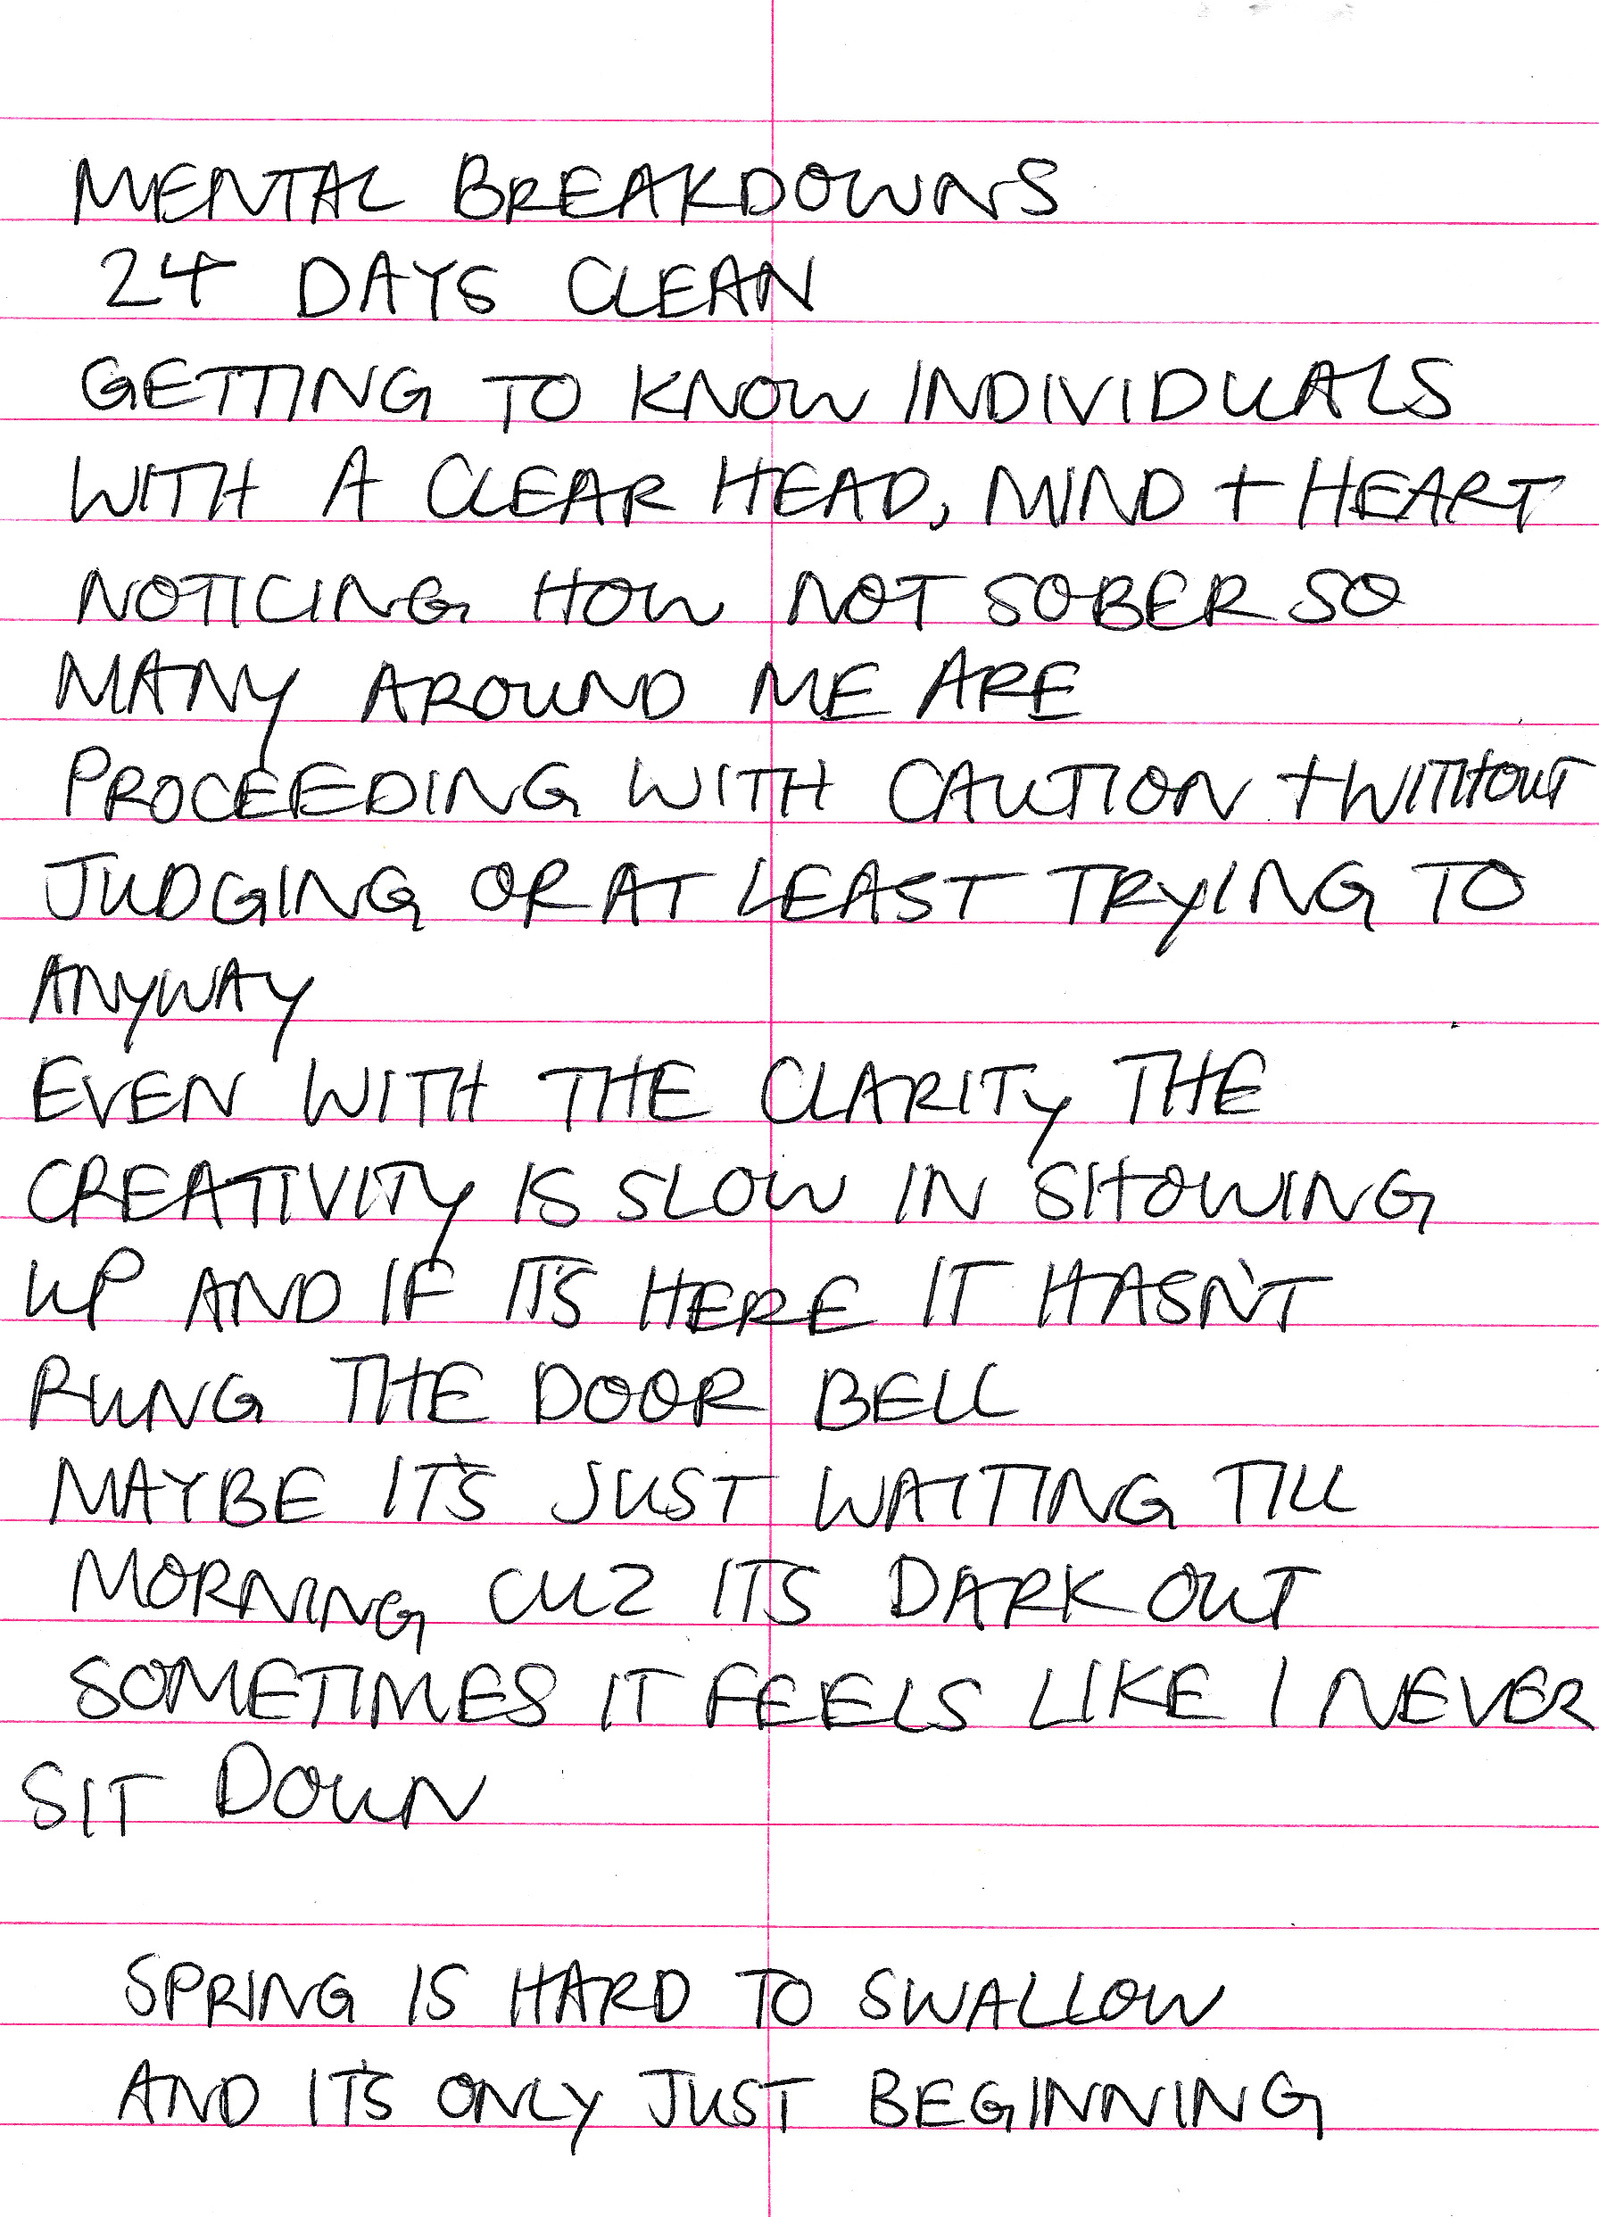 MENTAL BREAKDOWNS
24 DAYS CLEAN
GETTING TO KNOW INDIVIDUALS
WITH A CLEAR HEAD, MIND + HEART
NOTICING HOW NOT SOBER SO
MANY AROUND ME ARE
PROCEEDING WITH CAUTION + WITHOUT
JUDGING OR AT LEAST TRYING TO
ANYWAY
EVEN WITH THE CLARITY THE
CREATIVITY IS SLOW IN SHOWING
UP AND IF IT'S HERE IT HASN'T
RUNG THE DOOR BELL
MAYBE IT'S JUST WAITING TILL
MORNING CUZ ITS DARK OUT
SOMETIMES IT FEELS LIKE I NEVER
SIT DOWN
SPRING IS HARD TO SWALLOW
AND IT'S ONLY JUST BEGINNING